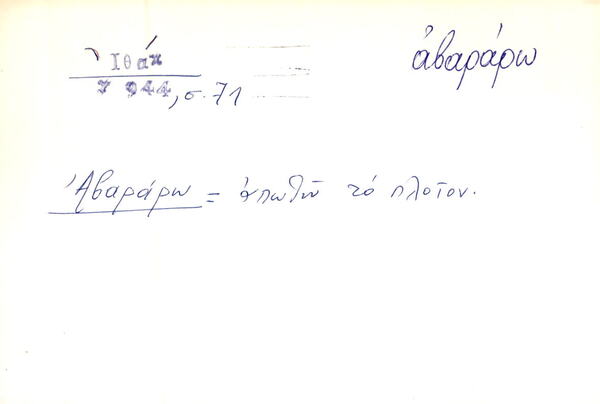 Ἰθάκ
ἀβαράρω
7 944, σ. 71
Ἀβαράρω = ἀπωθῶ τό πλοῖον.